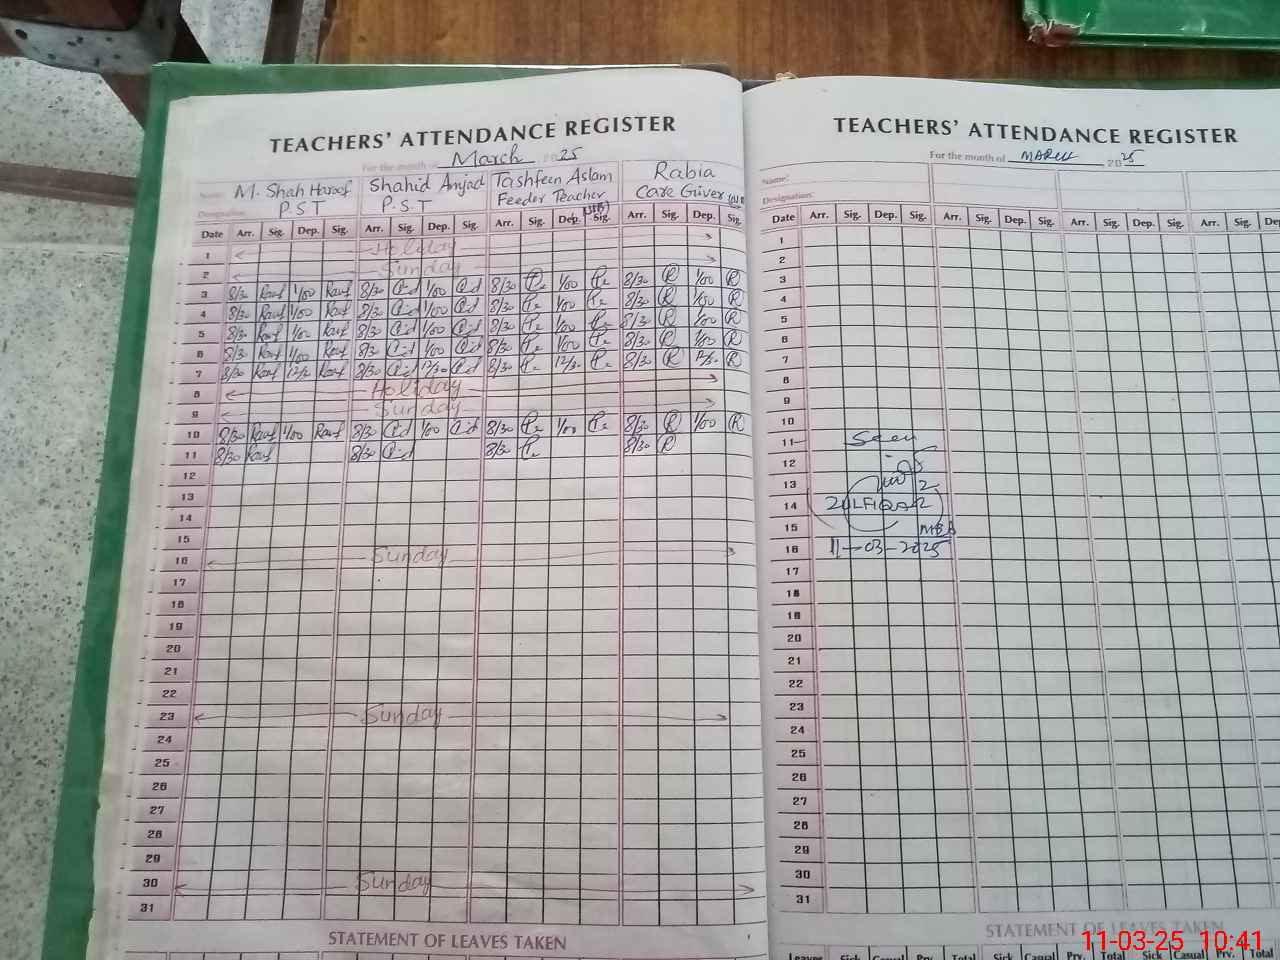 TEACHERS' ATTENDANCE REGISTER
For the month of March 2025
Name: M. Shah Haroof Shahid Amjad Tashfeen Aslam Rabia
Designation: P.S.T P.S.T Feeder Teacher Care Giver
Date Arr. Sig. Dep. Sig. Arr. Sig. Dep. Sig. Arr. Sig. Dep. Sig. Arr. Sig. Dep. Sig.
1 Holiday
2 Sunday
3 8/30 Rauf 1/00 Rauf 8/30 1/00 8/30 1/00 8/30 R 1/00 R
4 8/30 Rauf 1/00 Rauf 8/30 1/00 8/30 1/00 8/30 R 1/00 R
5 8/30 Rauf 1/00 Rauf 8/30 1/00 8/30 1/00 8/30 R 1/00 R
6 8/30 Rauf 1/00 Rauf 8/30 1/00 8/30 1/00 8/30 R 1/00 R
7 8/30 Rauf Rauf 8/30 12/30 8/30 12/30 8/30 R R
8 Holiday
9 Sunday
10 8/30 Rauf 1/00 Rauf 8/30 1/00 8/30 1/00 8/30 R 1/00 R
11 8/30 Rauf 8/30 8/30 8/30 R
12
13
14
15
16 Sunday
17
18
19
20
21
22
23 Sunday
24
25
26
27
28
29
30 Sunday
31
STATEMENT OF LEAVES TAKEN
TEACHERS' ATTENDANCE REGISTER
For the month of MARCH 2025
Name:
Designation:
Date Arr. Sig. Dep. Sig. Arr. Sig. Dep. Sig. Arr. Sig. Dep. Sig. Arr. Sig.
1
2
3
4
5
6
7
8
9
10
11 Seen
12
13
14 ZULFIQAR
15
16 11-03-2025
17
18
19
20
21
22
23
24
25
26
27
28
29
30
31
STATEMENT OF LEAVES TAKEN
Leaves Sick Casual Prv. Total Sick Casual Prv. Total Sick Casual Prv. Total
11-03-25 10:41